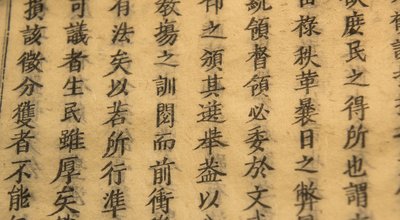 庶民之得所也謂
祿秩革曩日之弊
統領督領必委於文
之頒其選舉盖以
教塲之訓閱而前衝
有法矣以若所行準
可議者生民雖厚矣
損該徵分獲者不能